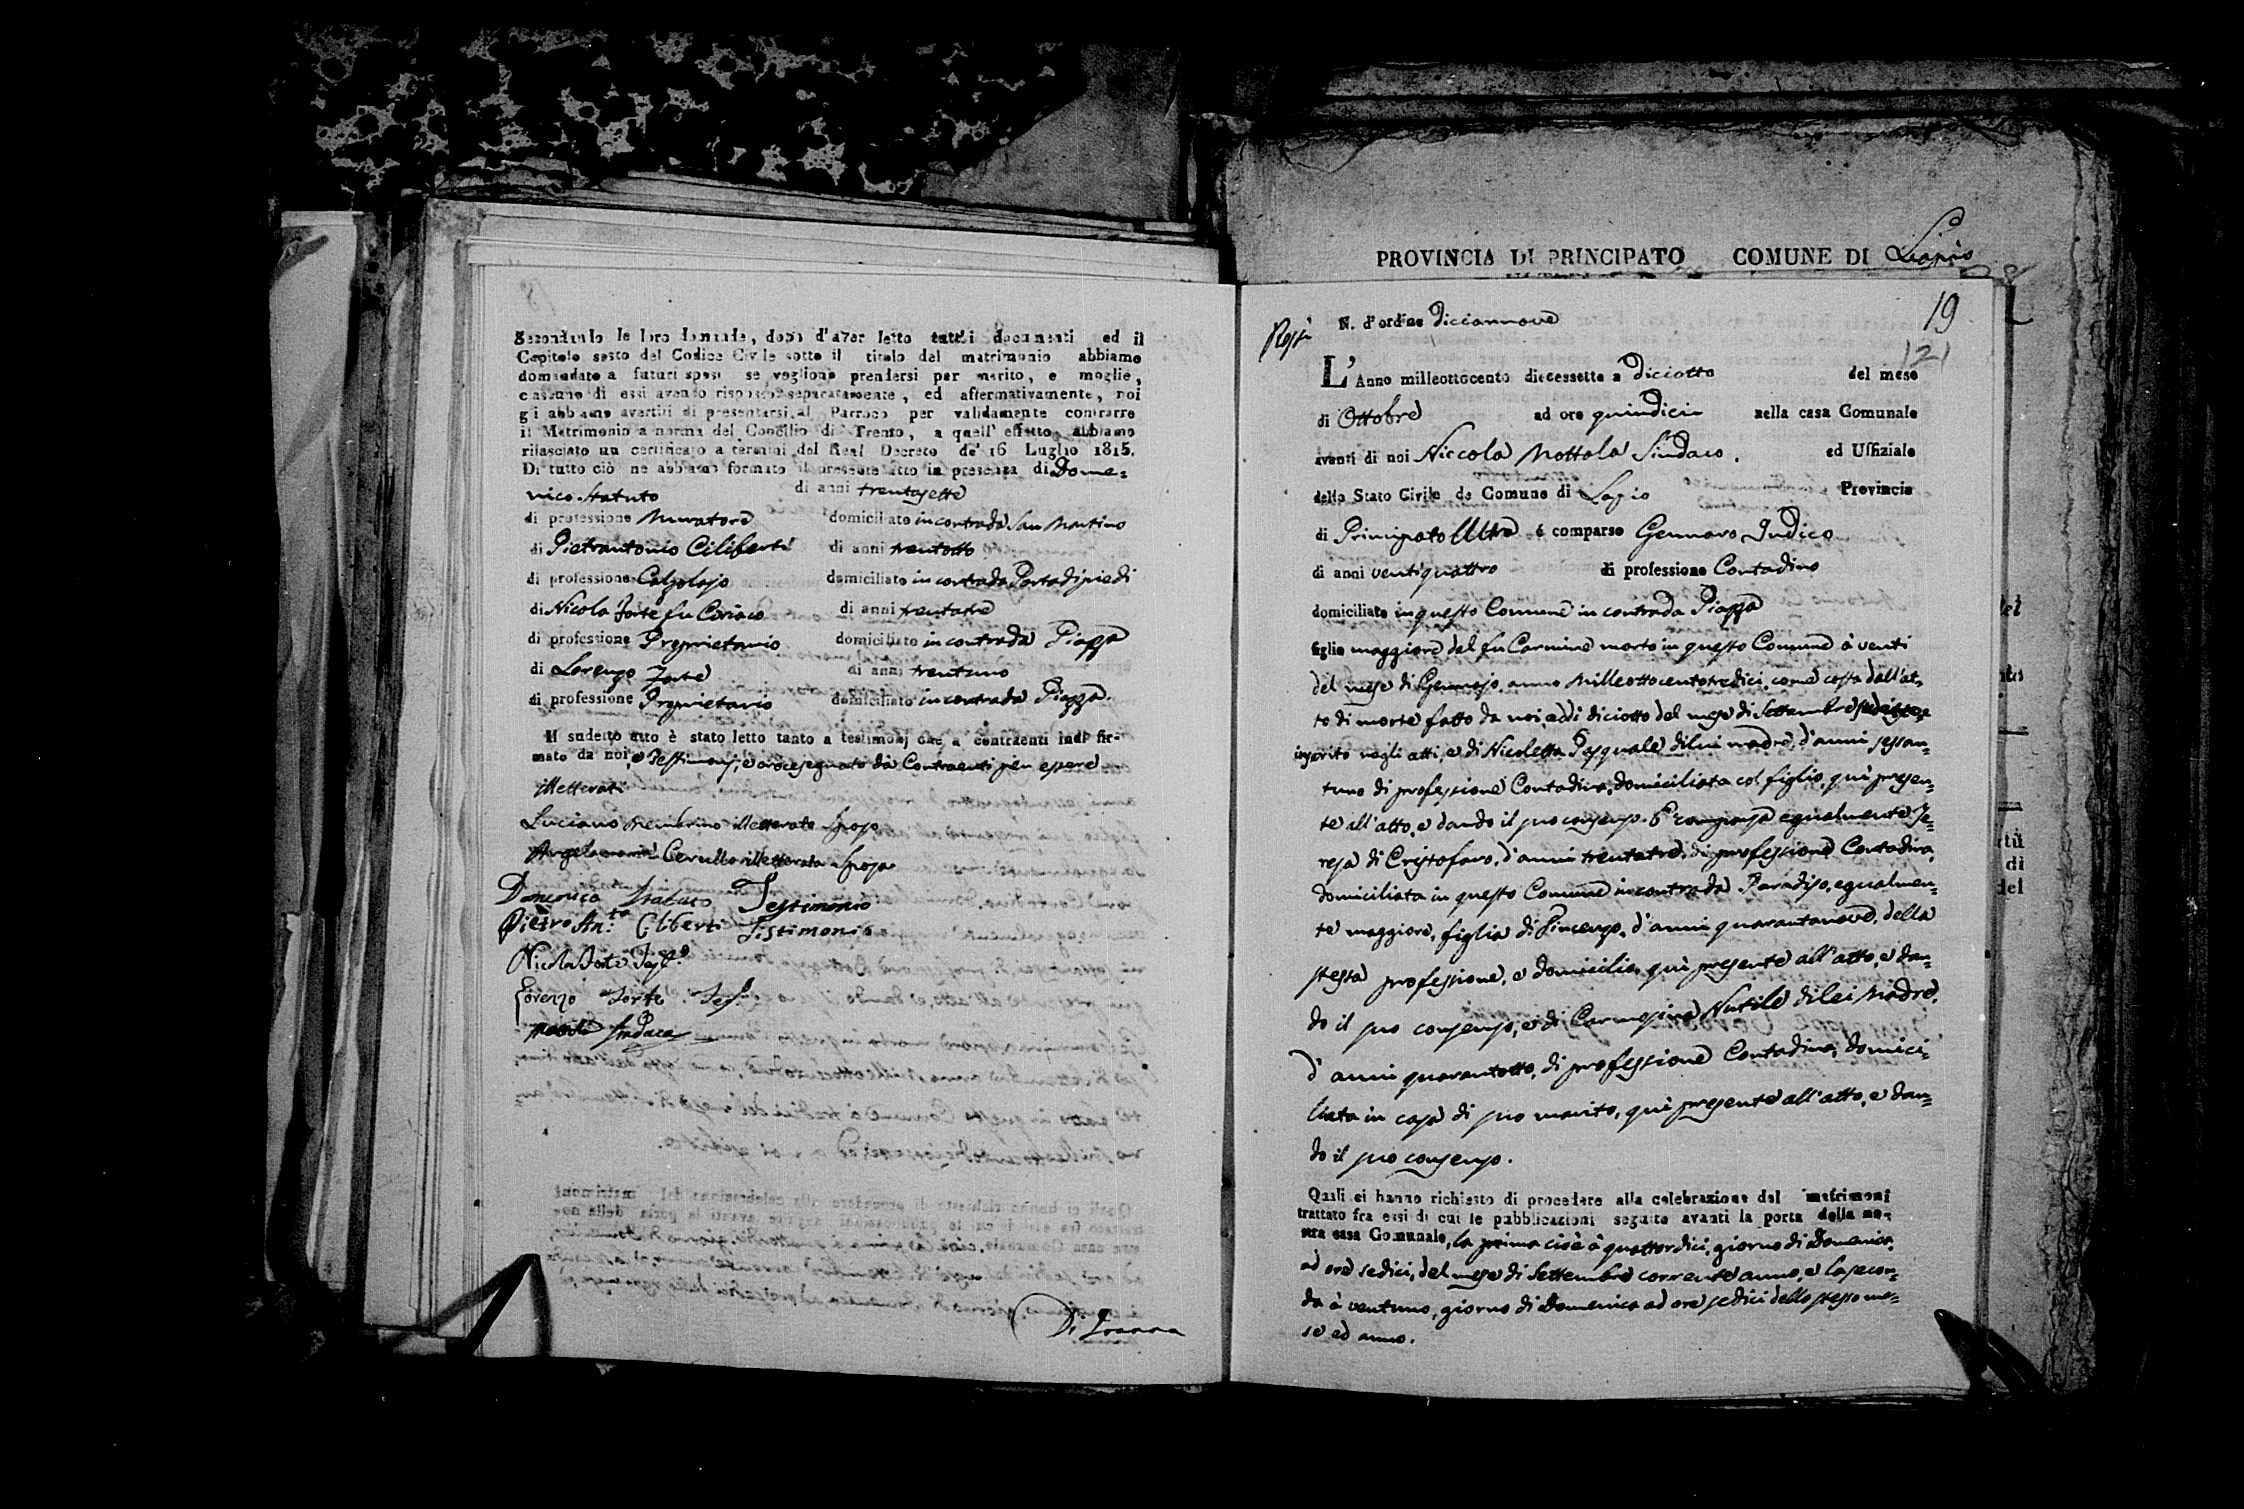 Secondando le loro domande, dopo d'aver letto tutti i documenti ed il
Capitolo sesto del Codice Civile sotto il titolo del matrimonio abbiamo
domandato a futuri sposi se vogliono prendersi per marito, e moglie,
ciascuno di essi avendo risposto separatamente, ed affermativamente, noi
gli abbiamo avertiti di presentarsi al Parroco per validamente contrarre
il Matrimonio a norma del Concilio di Trento, a quell' effetto abbiamo
rilasciato un certificato a termini del Real Decreto de' 16 Luglio 1815.
Di tutto ciò ne abbiamo formato il presente atto in presenza di Dome=
nico Statuto di anni trentasette
di professione Muratore domiciliato in contrada San Martino
di Pietrantonio Ciliberti di anni trentotto
di professione Calzolajo domiciliato in contrada Portadipiedi
di Nicola Forte fu Ciriaco di anni trentatre
di professione Proprietario domiciliato in contrada Piazza
di Lorenzo Forte di anni trentuno
di professione Proprietario domiciliato in contrada Piazza.
Il sudetto atto è stato letto tanto a testimonj che a contraenti indi fir-
mato da noi, e Testimonj, e crocesegnato da Contraenti per essere
illetterati
Luciano illetterato Sposo
Angelamaria Cerullo illetterata Sposa
Domenico Statuto Testimonio
Pietro An.to Ciliberti Testimonio
Nicola Forte Test.o
Lorenzo Forte Tes.o
Sindaco
Di
PROVINCIA DI PRINCIPATO COMUNE DI Lapio
19
121
N. d'ordine Diciannove
L'Anno milleottocento diecessette a diciotto del mese
di Ottobre ad ore quindici nella casa Comunale
avanti di noi Niccola Mottola Sindaco. ed Uffiziale
dello Stato Civile de Comune di Lapio Provincia
di Principato Ultra é comparso Gennaro Iudico
di anni ventiquattro di professione Contadino
domiciliato in questo Comune in contrada Piazza
figlio maggiore del fu Carmine morto in questo Comune à venti
del mese di Gennajo anno Milleottocentotredici, come costa dall'at=
to di morte fatto da noi, addi diciotto del mese di Settembre
inserito negli atti, e di Nicoletta Pasquale di lui madre, d'anni sessan=
tuno di professione Contadina, domiciliata col figlio, quì presen=
te all'atto, e dando il suo consenso. E' comparsa egualmente Te=
resa di Cristofaro, d'anni trentatre, di professione Contadina,
domiciliata in questo Comune in contrada Paradiso, egualmen=
te maggiore, figlia di Vincenzo, d'anni quarantanove, della
stessa professione, e domicilio, quì presente all'atto, e dan=
do il suo consenso, e di Carmosina Nutile di lei Madre,
d'anni quarantotto, di professione Contadina, domici=
liata in casa di suo marito, quì presente all'atto, e dan=
do il suo consenso.
Quali ci hanno richiesto di procedere alla celebrazione del matrimoni
trattato fra essi di cui le pabblicazioni seguite avanti la porta della no-
stra casa Comunale, la prima cioè à quattordici, giorno di Domenica,
ad ore sedici, del mese di Settembre corrente anno, e la secon=
da à ventuno, giorno di Domenica ad ore sedici dello stesso me=
se ed anno.